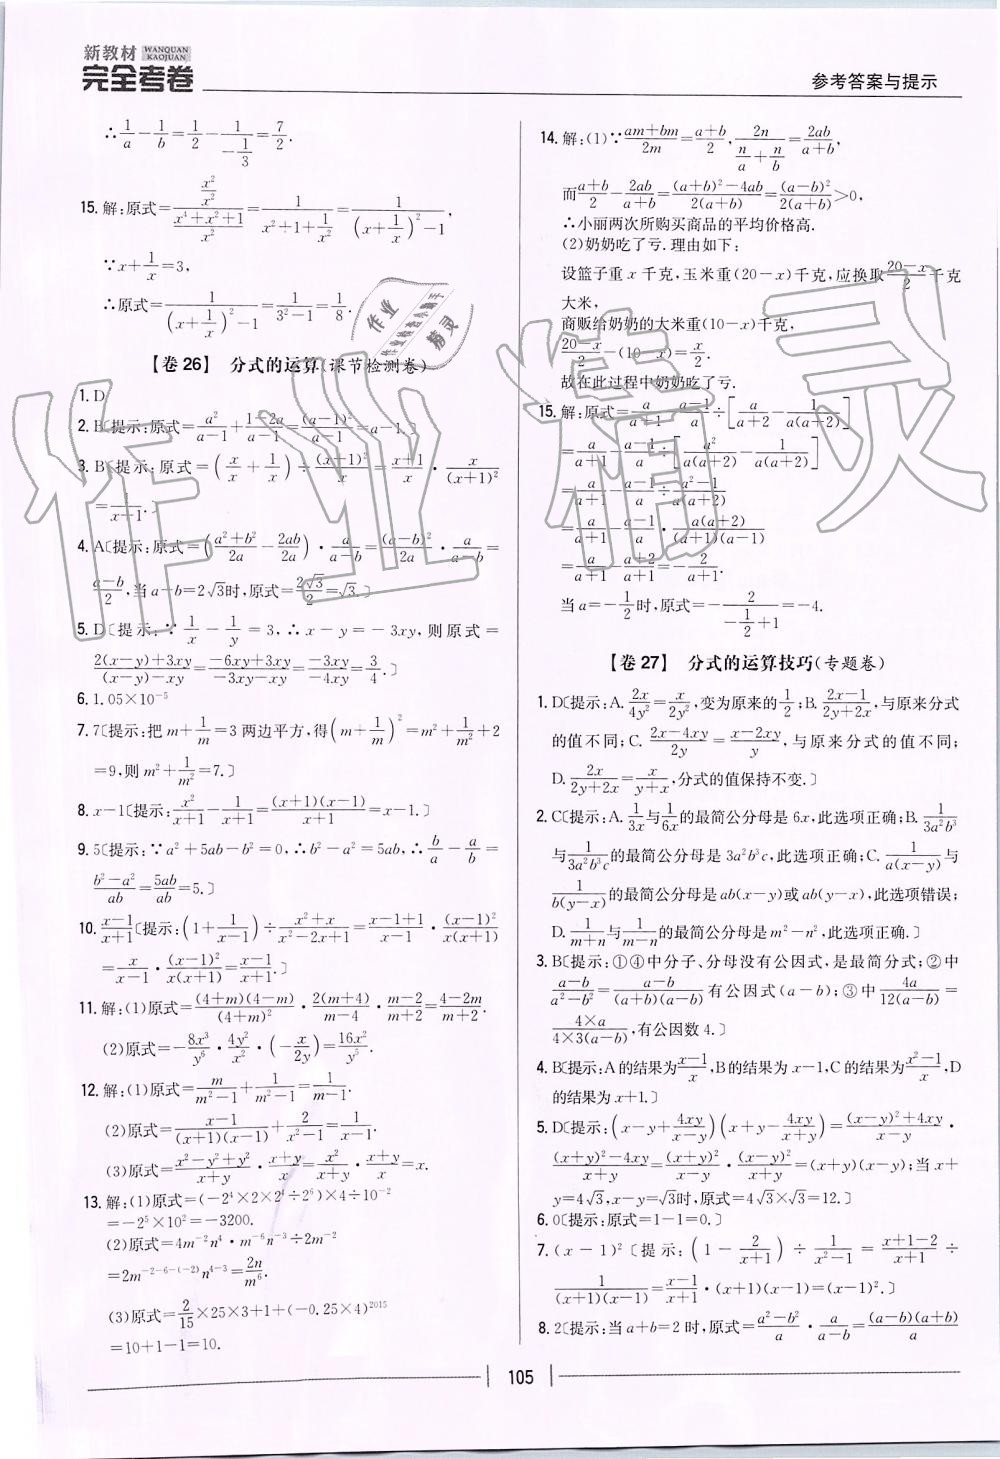 新教材 WANQUAN KAOJUAN
完全考卷
参考答案与提示
∴1/a−1/b=1/2−1/(−1/3)=7/2.
15.解:原式=(x²/x²)/((x⁴+x²+1)/x²)=1/(x²+1+1/x²)=1/((x+1/x)²−1),
∵x+1/x=3,
∴原式=1/((x+1/x)²−1)=1/(3²−1)=1/8.
【卷26】 分式的运算(课节检测卷)
1.D
2.B〔提示:原式=a²/(a−1)+(1−2a)/(a−1)=(a−1)²/(a−1)=a−1.〕
3.B〔提示:原式=(x/x+1/x)÷(x+1)²/x=(x+1)/x·x/(x+1)²
=1/(x+1).〕
4.A〔提示:原式=((a²+b²)/2a−2ab/2a)·a/(a−b)=(a−b)²/2a·a/(a−b)=
(a−b)/2,当a−b=2√3时,原式=2√3/2=√3.〕
5.D〔提示:∵1/x−1/y=3,∴x−y=−3xy,则原式=
(2(x−y)+3xy)/((x−y)−xy)=(−6xy+3xy)/(−3xy−xy)=−3xy/−4xy=3/4.〕
6.1.05×10⁻⁵
7.7〔提示:把m+1/m=3两边平方,得(m+1/m)²=m²+1/m²+2
=9,则m²+1/m²=7.〕
8.x−1〔提示:x²/(x+1)−1/(x+1)=(x+1)(x−1)/(x+1)=x−1.〕
9.5〔提示:∵a²+5ab−b²=0,∴b²−a²=5ab,∴b/a−a/b=
(b²−a²)/ab=5ab/ab=5.〕
10.(x−1)/(x+1)〔提示:(1+1/(x−1))÷(x²+x)/(x²−2x+1)=(x−1+1)/(x−1)·(x−1)²/(x(x+1))
=x/(x−1)·(x−1)²/(x(x+1))=(x−1)/(x+1).〕
11.解:(1)原式=(4+m)(4−m)/(4+m)²·2(m+4)/(m−4)·(m−2)/(m+2)=(4−2m)/(m+2).
(2)原式=−8x³/y⁶·4y²/x²·(−x/2y)=16x²/y⁵.
12.解:(1)原式=m/(m²−1)+1/(m²−1)=1/(m−1).
(2)原式=(x−1)/((x+1)(x−1))+2/(x²−1)=1/(x−1).
(3)原式=(x²−y²+y²)/(x+y)·(x+y)/x=x²/(x+y)·(x+y)/x=x.
13.解:(1)原式=(−2⁴×2×2⁴÷2⁶)×4÷10⁻²
=−2⁵×10²=−3200.
(2)原式=4m⁻²n⁴·m⁻⁶n⁻³÷2m⁻²
=2m⁻²⁻⁶⁻⁽⁻²⁾n⁴⁻³=2n/m⁶.
(3)原式=2/15×25×3+1+(−0.25×4)²⁰¹⁵
=10+1−1=10.
14.解:(1)∵(am+bm)/2m=(a+b)/2,2n/(n/a+n/b)=2ab/(a+b),
而(a+b)/2−2ab/(a+b)=((a+b)²−4ab)/(2(a+b))=(a−b)²/(2(a+b))>0,
∴小丽两次所购买商品的平均价格高.
(2)奶奶吃了亏.理由如下:
设篮子重x千克,玉米重(20−x)千克,应换取(20−x)/2千克
大米,
商贩给奶奶的大米重(10−x)千克,
(20−x)/2−(10−x)=x/2.
故在此过程中奶奶吃了亏.
15.解:原式=a/(a+1)−(a−1)/a÷[a/(a+2)−1/(a(a+2))]
=a/(a+1)−(a−1)/a÷[a²/(a(a+2))−1/(a(a+2))]
=a/(a+1)−(a−1)/a÷(a²−1)/(a(a+2))
=a/(a+1)−(a−1)/a·a(a+2)/((a+1)(a−1))
=a/(a+1)−(a+2)/(a+1)=−2/(a+1).
当a=−1/2时,原式=−2/(−1/2+1)=−4.
【卷27】 分式的运算技巧(专题卷)
1.D〔提示:A.2x/4y²=x/2y²,变为原来的1/2;B.(2x−1)/(2y+2x),与原来分式
的值不同;C.(2x−4xy)/2y=(x−2xy)/y,与原来分式的值不同;
D.2x/(2y+2x)=x/(y+x),分式的值保持不变.〕
2.C〔提示:A.1/3x与1/6x的最简公分母是6x,此选项正确;B.1/3a²b³
与1/3a²b³c的最简公分母是3a²b³c,此选项正确;C.1/(a(x−y))与
1/(b(y−x))的最简公分母是ab(x−y)或ab(y−x),此选项错误;
D.1/(m+n)与1/(m−n)的最简公分母是m²−n²,此选项正确.〕
3.B〔提示:①④中分子、分母没有公因式,是最简分式;②中
(a−b)/(a²−b²)=(a−b)/((a+b)(a−b))有公因式(a−b);③中4a/(12(a−b))=
4×a/(4×3(a−b)),有公因数4.〕
4.B〔提示:A的结果为(x−1)/x,B的结果为x−1,C的结果为(x²−1)/x,D
的结果为x+1.〕
5.D〔提示:(x−y+4xy/(x−y))(x+y−4xy/(x+y))=((x−y)²+4xy)/(x−y)·
((x+y)²−4xy)/(x+y)=(x+y)²/(x−y)·(x−y)²/(x+y)=(x+y)(x−y);当x+
y=4√3,x−y=√3时,原式=4√3×√3=12.〕
6.0〔提示:原式=1−1=0.〕
7.(x−1)²〔提示:(1−2/(x+1))÷1/(x²−1)=(x+1−2)/(x+1)÷
1/((x+1)(x−1))=(x−1)/(x+1)·(x+1)(x−1)=(x−1)².〕
8.2〔提示:当a+b=2时,原式=(a²−b²)/a·a/(a−b)=(a−b)(a+b)/a
105
作业精灵